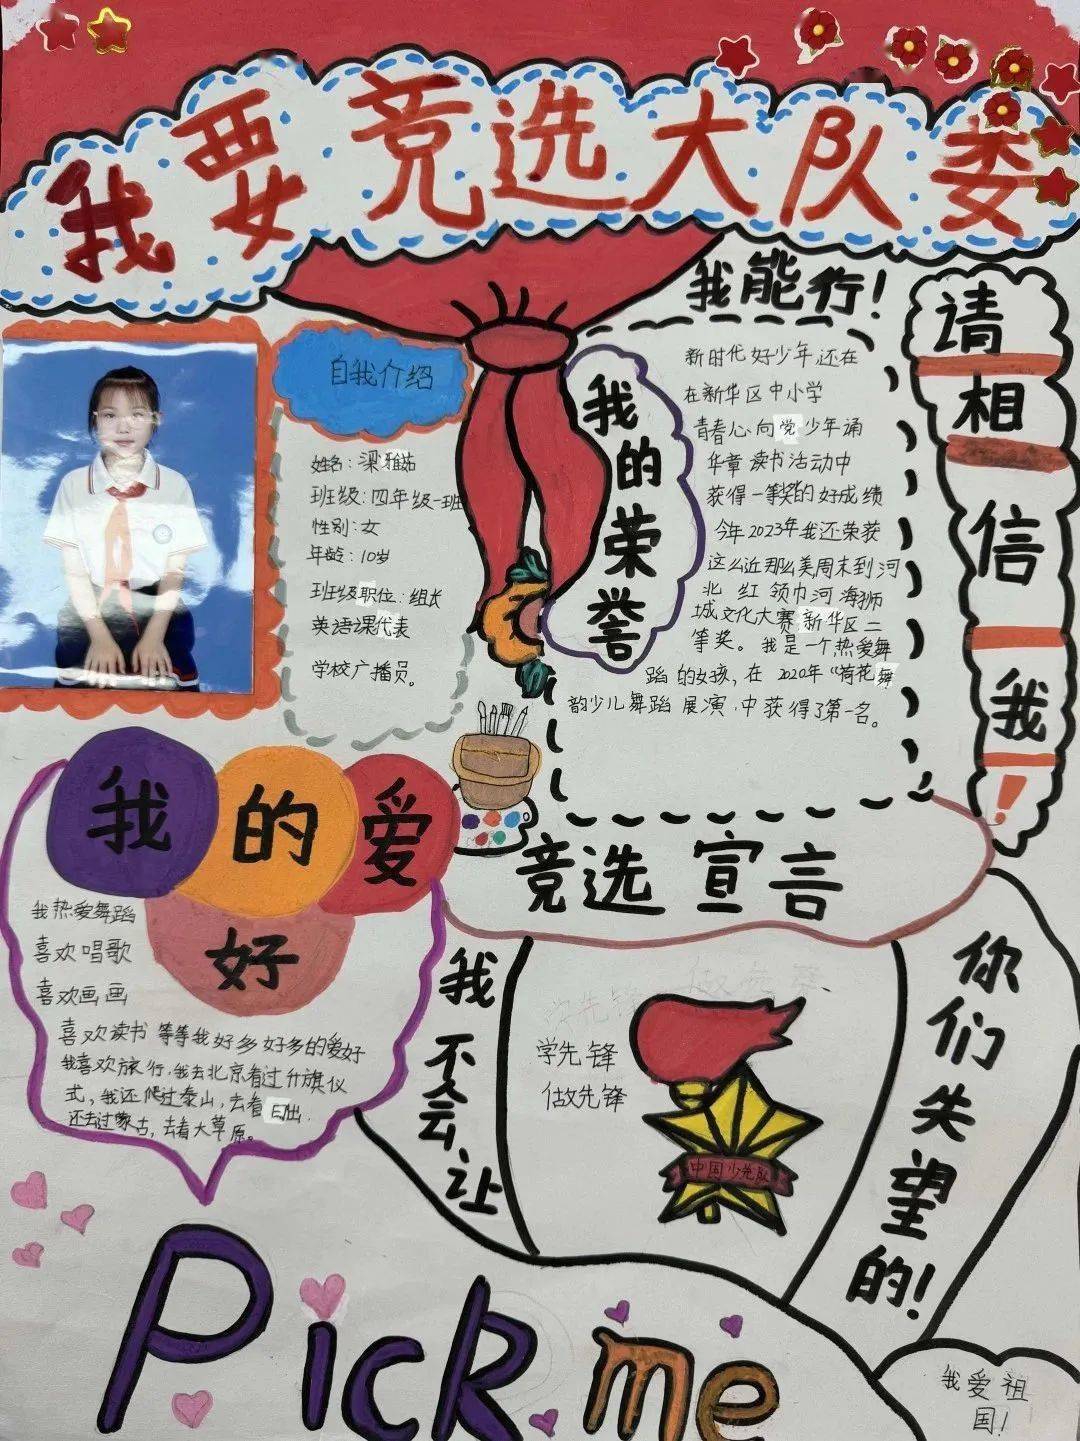 我要竞选大队委
我能行！
请相信我！
自我介绍
姓名：梁雅茹
班级：四年级一班
性别：女
年龄：10岁
班级职位：组长
英语课代表
学校广播员。
我的荣誉
新时代好少年还在
在新华区中小学
青春心向党少年诵
华章读书活动中
获得一等奖的好成绩
今年2023年我还荣获
这么近那么美周末到河
北红领巾河海狮
城文化大赛新华区二
等奖。我是一个热爱舞
蹈的女孩，在2020年“荷花舞
韵少儿舞蹈展演，中获得了第一名。
我的爱
好
我热爱舞蹈
喜欢唱歌
喜欢画画
喜欢读书等等我好多好多的爱好
我喜欢旅行，我去北京看过升旗仪
式，我还爬过泰山，去看日出.
还去过蒙古，去看大草原。
竞选宣言
我不会让
学先锋
做先锋
中国少先队
你们失望的！
Pick me
我爱祖
国！